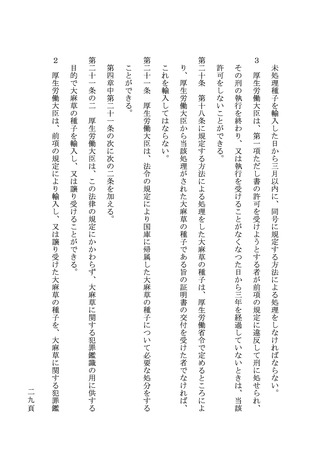 未処理種子を輸入した日から三月以内に、同号に規定する方法による処理をしなければならない。
3　厚生労働大臣は、第一項ただし書の許可を受けようとする者が前項の規定に違反して刑に処せられ、
その刑の執行を終わり、又は執行を受けることがなくなつた日から三年を経過していないときは、当該
許可をしないことができる。
第二十条　第十八条に規定する方法による処理をした大麻草の種子は、厚生労働省令で定めるところによ
り、厚生労働大臣から当該処理がされた大麻草の種子である旨の証明書の交付を受けた者でなければ、
これを輸入してはならない。
第二十一条　厚生労働大臣は、法令の規定により国庫に帰属した大麻草の種子について必要な処分をする
ことができる。
第四章中第二十一条の次に次の二条を加える。
第二十一条の二　厚生労働大臣は、この法律の規定にかかわらず、大麻草に関する犯罪鑑識の用に供する
目的で大麻草の種子を輸入し、又は譲り受けることができる。
2　厚生労働大臣は、前項の規定により輸入し、又は譲り受けた大麻草の種子を、大麻草に関する犯罪鑑
二九頁